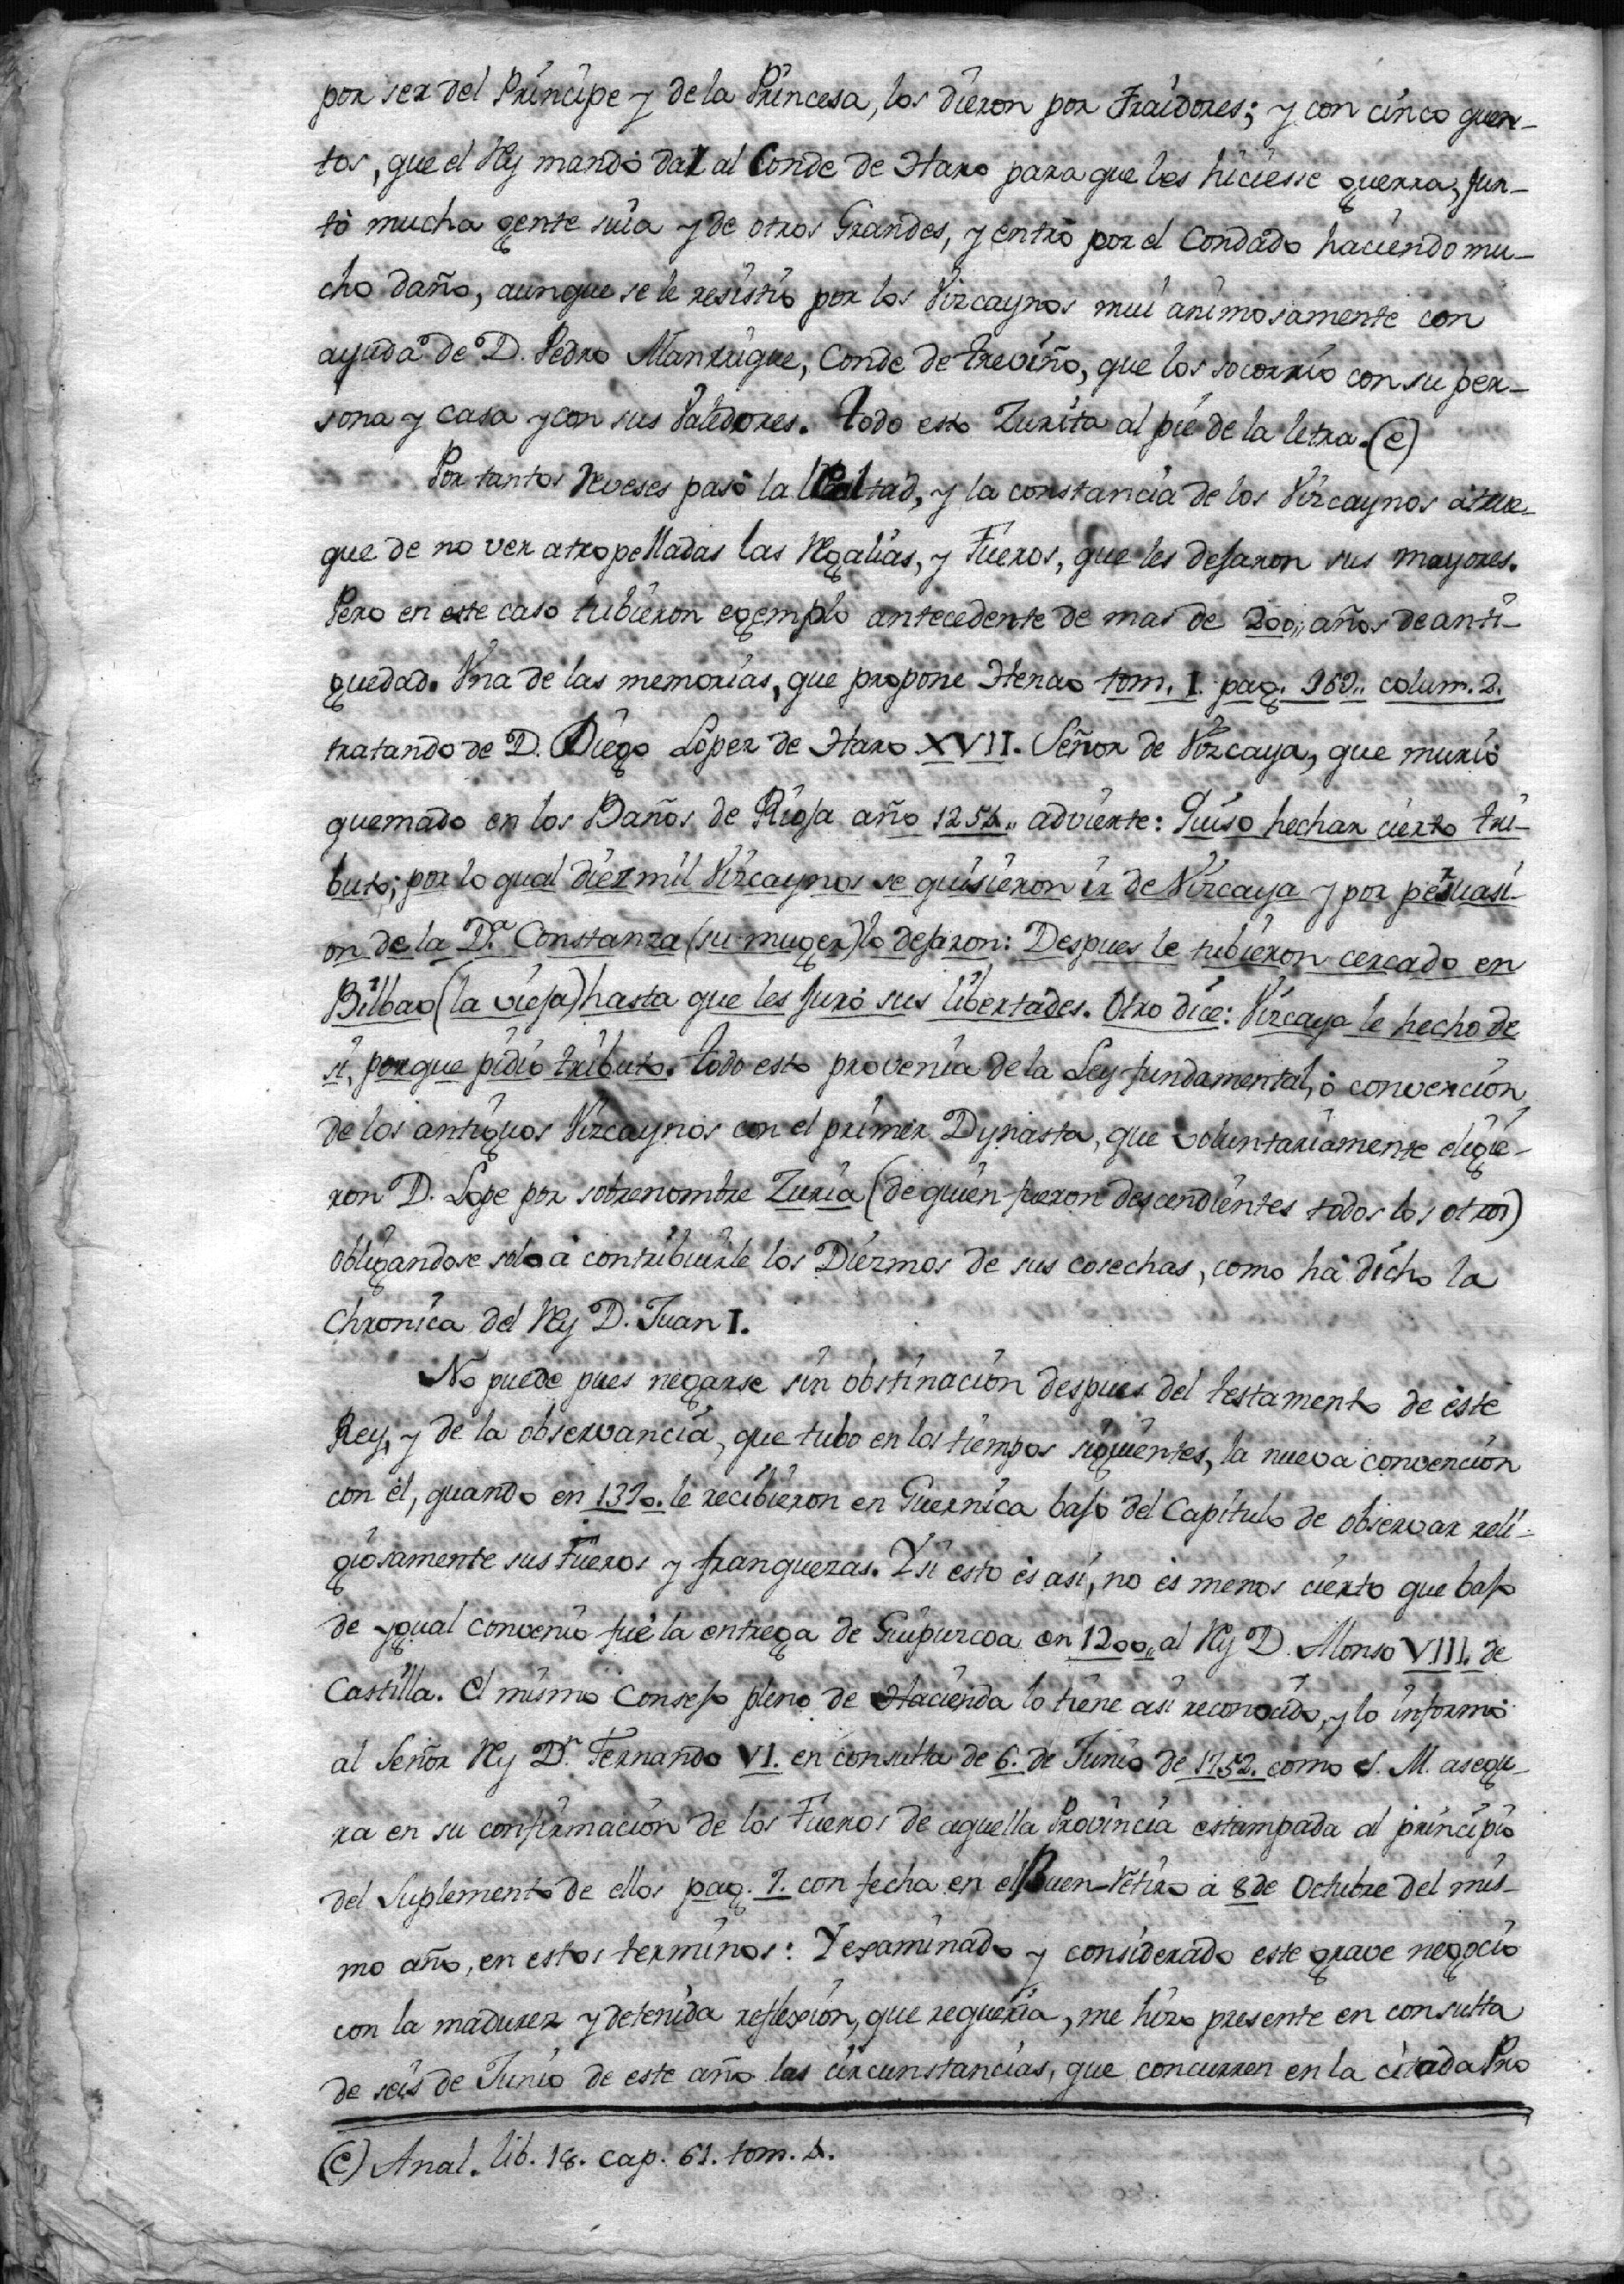 por ser del Príncipe y de la Princesa, los dieron por Traidores; y con cinco quen-
tos, que el Rey mandó dar al Conde de Haro para que les hiciesse guerra, jun-
tó mucha gente suia y de otros Grandes, y entró por el Condado haciendo mu-
cho daño, aunque se le resistió por los Vizcaynos mui animosamente con
ayuda de D. Pedro Manrrique, Conde de Treviño, que los socorrió con su per-
sona y casa y con sus Valedores. Todo esto Zurita al pie de la letra. (c)
Por tantos Reveses pasó la lealtad, y la constancia de los Vizcaynos á true-
que de no ver atropelladas las Regalias, y Fueros, que les dejaron sus mayores.
Pero en este caso tubieron egemplo antecedente de mas de 200,, años de anti-
guedad. Una de las memorias, que propone Henao tom. I. pag. 362.. colum. 2.
tratando de D. Diego López de Haro XVII. Señor de Vizcaya, que murió
quemado en los Baños de Rioja año 1254,, advierte: Quiso hechar cierto tri-
buto; por lo qual diez mil Vizcaynos se quisieron ir de Vizcaya y por persuasi-
on de la D.ª Constanza (su muger) lo dejaron: Despues le tubieron cercado en
Bilbao (la vieja) hasta que les juró sus libertades. Otro dice: Vizcaya le hecho de
sí, porque pidió tributo. Todo esto provenia de la Ley fundamental, ó convención
de los antiguos Vizcaynos con el primer Dynasta, que voluntariamente eligie-
ron D. Lope por sobrenombre Zuria (de quien fueron descendientes todos los otros)
obligandose solo á contribuirle los Diezmos de sus cosechas, como há dicho la
Chronica del Rey D. Juan I.
No puede pues negarse sin obstinación despues del testamento de este
Rey, y de la observancia, que tubo en los tiempos siguientes, la nueva convención
con él, quando en 1370. le recibieron en Guernica bajo del Capitulo de observar reli-
giosamente sus Fueros y franquezas. Y si esto és así, no és menos cierto que bajo
de ygual convenio fué la entrega de Guipuzcoa en 1200,, al Rey D. Alonso VIII. de
Castilla. El mismo Consejo pleno de Hacienda lo tiene asi reconocido, y lo informó
al Señor Rey D.n Fernando VI. en consulta de 6. de Junio de 1752. como S. M. asegu-
ra en su confirmación de los Fueros de aquella Provincia estampada al principio
del Suplemento de ellos pag. 7. con fecha en el Buen-Retiro á 8 de Octubre del mis-
mo año, en estos terminos: Y examinado y considerado este grave negocio
con la madurez y detenida reflexión, que requeria, me hizo presente en consulta
de seis de Junio de este año las circunstancias, que concurren en la citada Pro
(c) Anal. lib. 18. cap. 61. tom. 4.